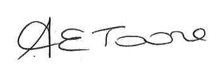 AE Toone